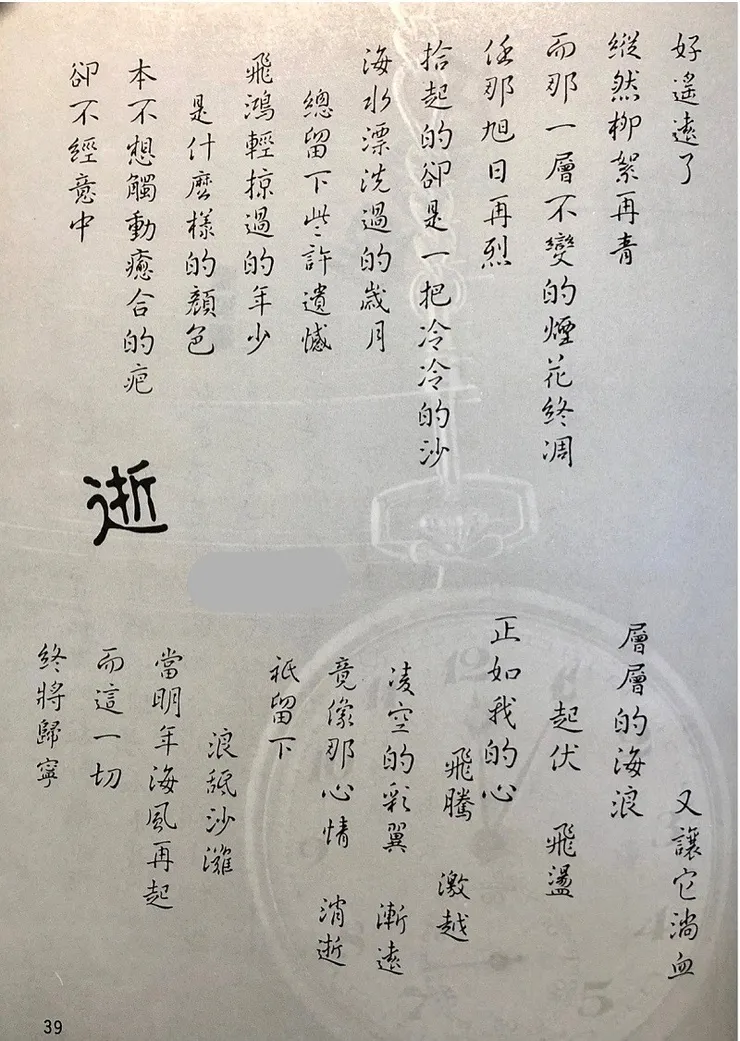 逝
好遙遠了
縱然柳絮再青
而那一層不變的煙花終凋
任那旭日再烈
拾起的卻是一把冷冷的沙
海水漂洗過的歲月
總留下些許遺憾
飛鴻輕掠過的年少
是什麼樣的顏色
本不想觸動癒合的疤
卻不經意中
又讓它淌血
層層的海浪
起伏 飛盪
正如我的心
飛騰 激越
凌空的彩翼 漸遠
竟像那心情 消逝
祇留下
浪舐沙灘
當明年海風再起
而這一切
終將歸寧
39